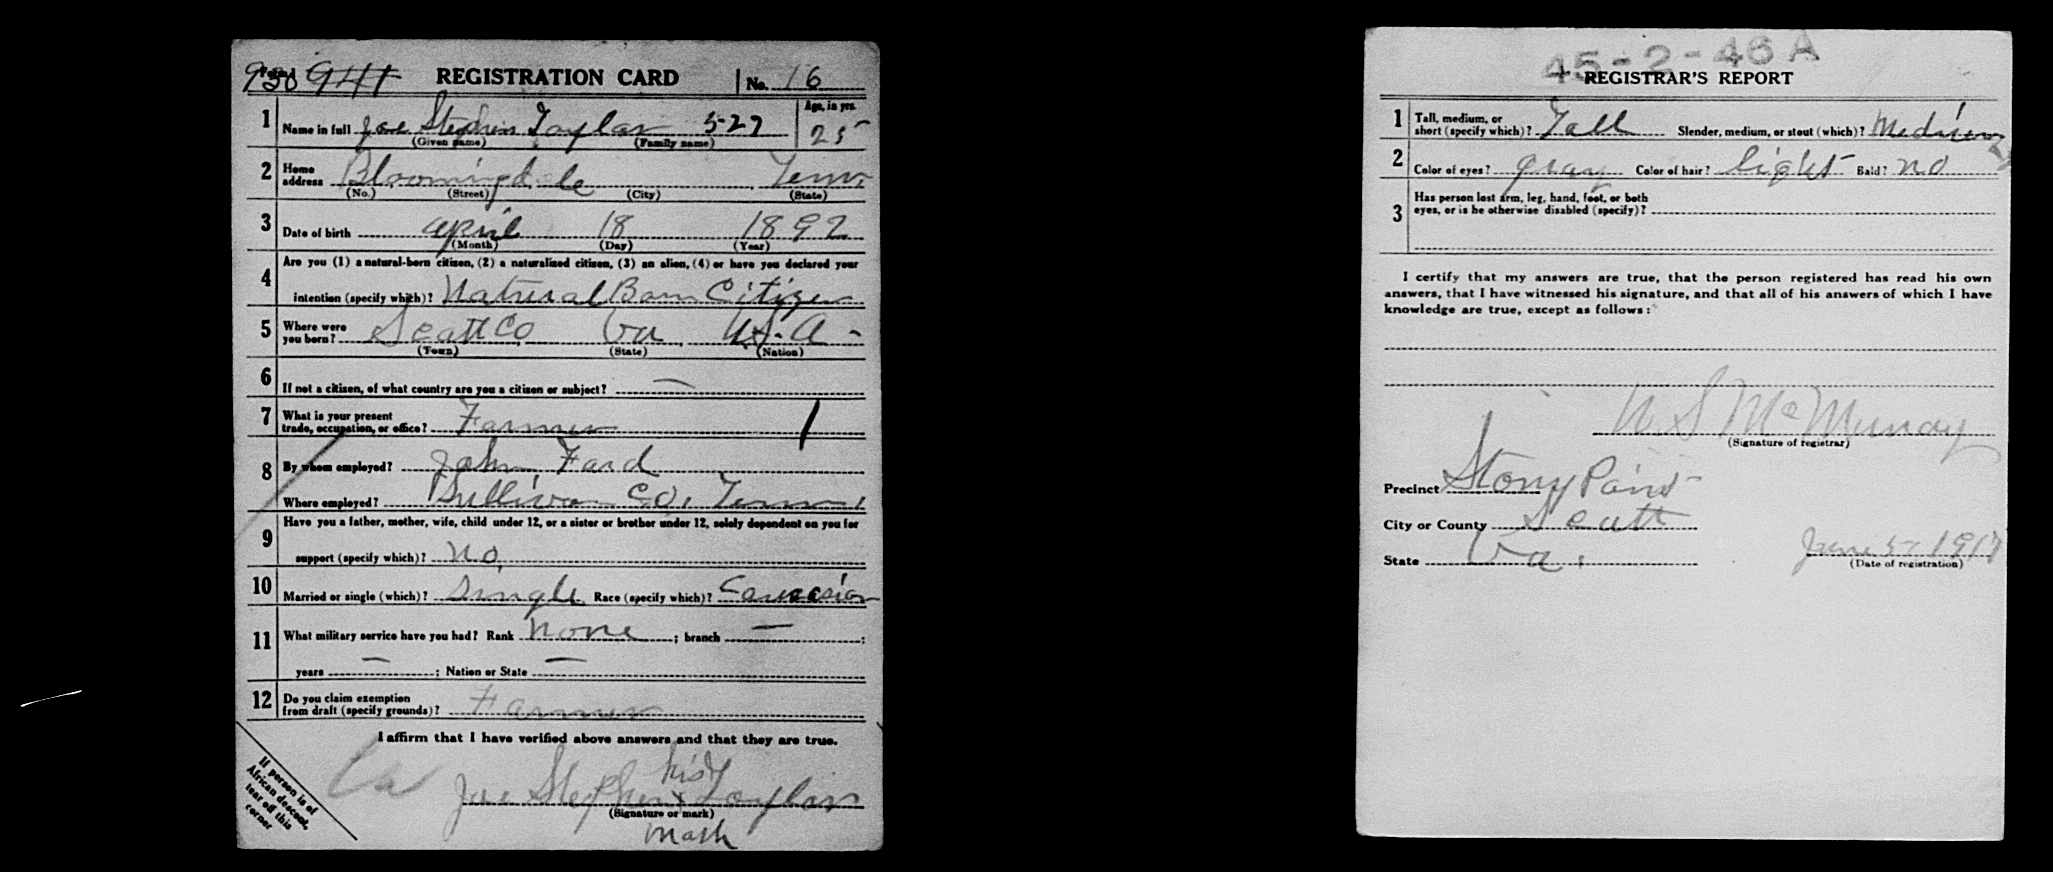 Form 1 930 941 REGISTRATION CARD No. 16
Age, in yrs.
1 Name in full Joe Stephen Taylor 5-27 25
(Given name) (Family name)
2 Home address Bloomingdale Tenn.
(No.) (Street) (City) (State)
3 Date of birth april 18 1892
(Month) (Day) (Year)
4 Are you (1) a natural-born citizen, (2) a naturalized citizen, (3) an alien, (4) or have you declared your
intention (specify which)? Natural Born Citizen
5 Where were you born? Scott Co Va U.S.A -
(Town) (State) (Nation)
6 If not a citizen, of what country are you a citizen or subject? —
7 What is your present
trade, occupation, or office? Farmer
8 By whom employed? John Ford
Where employed? Sullivan Co, Tenn.
9 Have you a father, mother, wife, child under 12, or a sister or brother under 12, solely dependent on you for
support (specify which)? no
10 Married or single (which)? Single Race (specify which)? Caucasian
11 What military service have you had? Rank none ; branch — ;
years — ; Nation or State —
12 Do you claim exemption
from draft (specify grounds)? Farmer
I affirm that I have verified above answers and that they are true.
his
Joe Stephen x Taylor
(Signature or mark)
mark
If person is of
African descent,
tear off this
corner
45-2-46 A
REGISTRAR'S REPORT
1 Tall, medium, or
short (specify which)? Tall Slender, medium, or stout (which)? Medium
2 Color of eyes? gray Color of hair? light Bald? no
3 Has person lost arm, leg, hand, foot, or both
eyes, or is he otherwise disabled (specify)?
I certify that my answers are true, that the person registered has read his own
answers, that I have witnessed his signature, and that all of his answers of which I have
knowledge are true, except as follows:
W S McMurray
(Signature of registrar)
Precinct Stony Point
City or County Scott
State Va. June 5- 1917
(Date of registration)